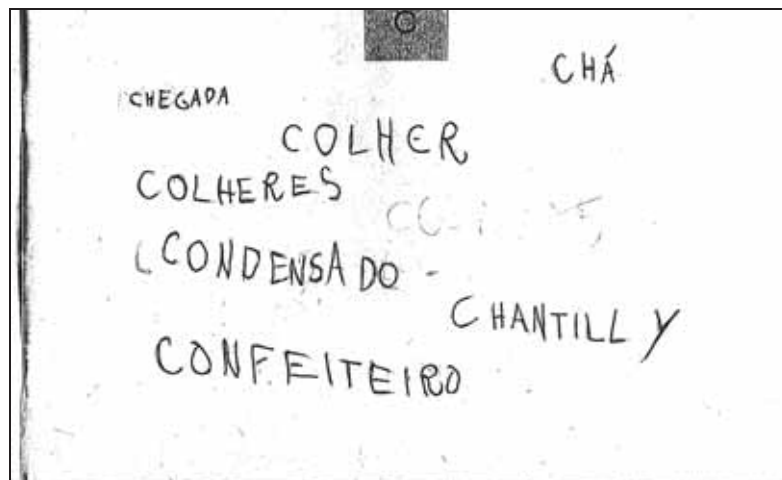 CHÁ
CHEGADA
COLHER
COLHERES
CONDENSADO
CHANTILLY
CONFEITEIRO